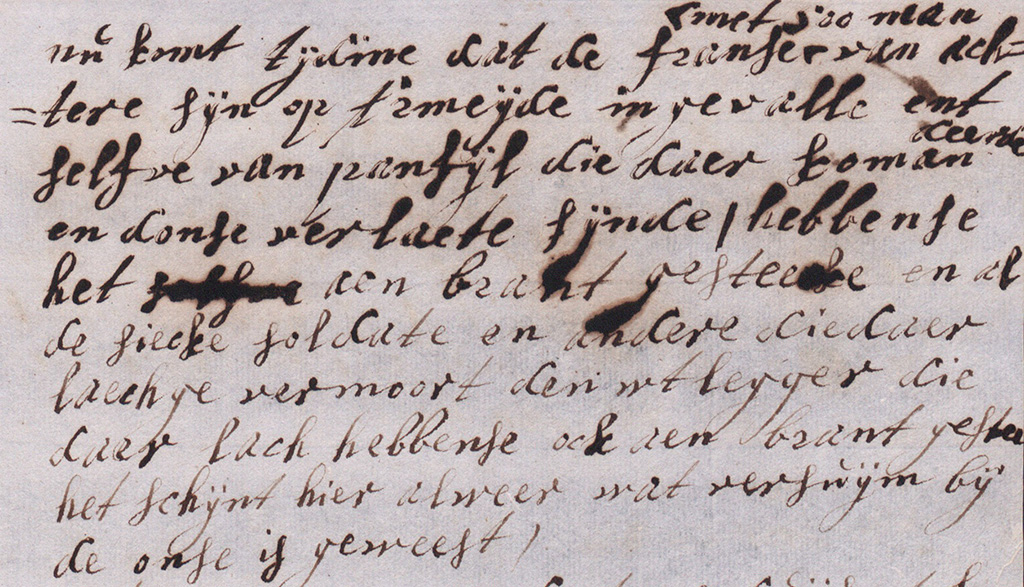 met 500 man
nŭ komt tydine dat de franse van ach=
=tere sÿn op t'rmeÿde in gevalle ent
selfve van pansÿl die daer koman
deerde
en donse verlaete sÿnde / hebbense
het aen brant gesteecke en al
de siecke soldate en andere die daer
laechge vermoort den wtlegger die
daer lach hebbense ock aen brant gestee
het schÿnt hier alweer wat versuÿm bÿ
de onse is geweest /